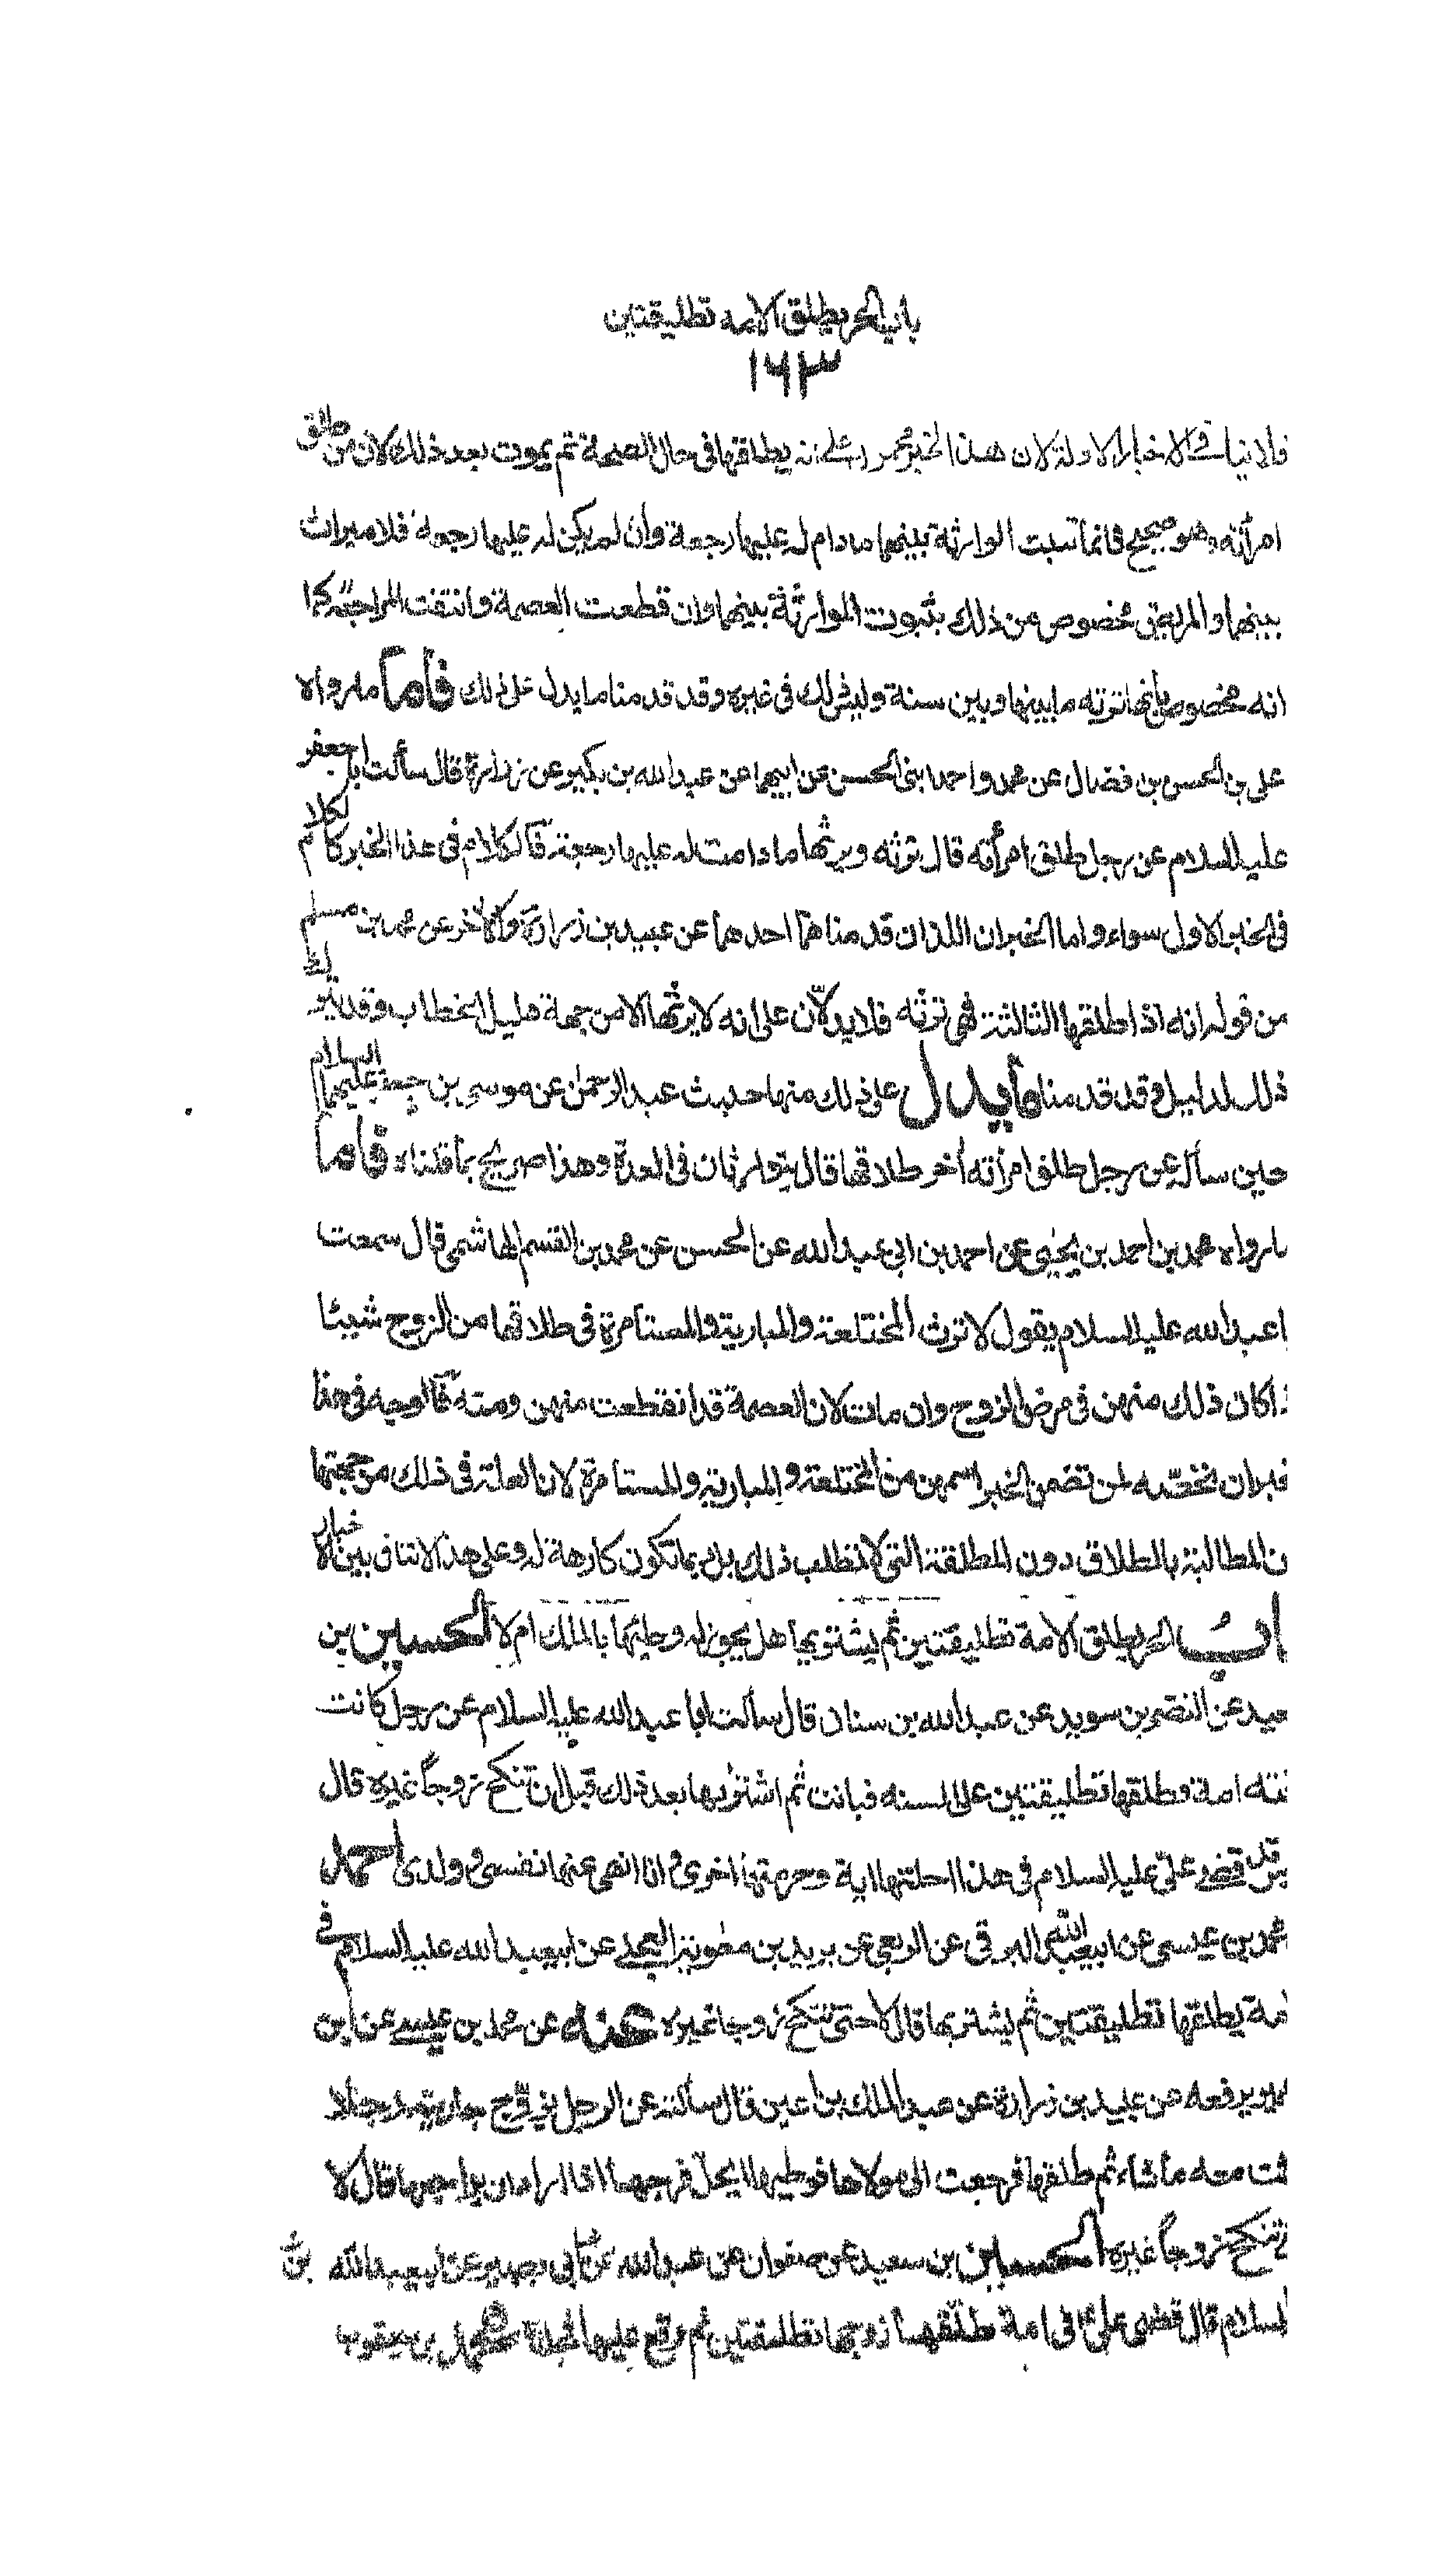 باب الحر يطلق الامة تطليقتين
١٦٣
فلا ينافي الاخبار الاولة لان هذا الخبر محمول على انه يطلقها في حال الصحة ثم يموت بعد ذلك لان من طلق
امرأته وهو صحيح فانما تثبت الموارثة بينهما ما دام له عليها رجعة وان لم يكن له عليها رجعة فلا ميراث
بينهما والمريض مخصوص من ذلك بثبوت الموارثة بينهما وان قطعت العصمة وانتفت المراجعة كما
انه مخصوص بانها ترثه ما بينها وبين سنة وليس ذلك في غيره وقد قدمنا ما يدل على ذلك فأما ما رواه
على بن الحسن بن فضال عن محمد واحمد ابنى الحسن عن ابيهما عن عبد الله بن بكير عن زرارة قال سألت ابا جعفر
عليه السلام عن رجل طلق امرأته قال ترثه ويرثها ما دامت له عليها رجعة فالكلام في هذا الخبر كالكلام
في الخبر الاول سواء واما الخبران اللذان قدمناهما احدهما عن عبيد بن زرارة والاخر عن محمد بن مسلم
من قوله انه اذا طلقها الثالثة فهي ترثه فلا يدلان على انه لا يرثها الا من جهة دليل الخطاب وقد يترك
ذلك لدليل وقد قدمنا ما يدل على ذلك منها حديث عبد الرحمن عن موسى بن جعفر عليهما السلام
حين سأله عن رجل طلق امرأته أخر طلاقها قال يتوارثان في العدة وهذا صريح بما قلناه فأما
ما رواه محمد بن أحمد بن يحيى عن احمد بن ابي عبد الله عن الحسن عن محمد بن القسم الهاشمي قال سمعت
ا عبد الله عليه السلام يقول لا ترث المختلعة والمبارية والمستأمرة في طلاقها من الزوج شيئا
ذا كان ذلك منهن في مرض الزوج وان مات لان العصمة قد انقطعت منهن ومنه فالوجه في هذا
خبر ان نخصه بمن تضمن الخبر اسمهن من المختلعة والمبارية والمستأمرة لان العلة في ذلك من جهتها
ن المطالبة بالطلاق دون المطلقة التي لا تطلب ذلك بل ربما تكون كارهة له وعلى هذا لا تنافى بين الاخبار
باب الحر يطلق الامة تطليقتين ثم يشتريها هل يجوز له وطيها بالملك ام لا الحسين بن
عيد عن النضر بن سويد عن عبد الله بن سنان قال سألت ابا عبد الله عليه السلام عن رجل كانت
تحته امة فطلقها تطليقتين على السنه فبانت ثم اشتراها بعد ذلك قبل ان تنكح زوجاً غيره قال
قد قضى على عليه السلام في هذا احلتها اية وحرمتها اخرى وانا انهى عنها نفسي وولدى احمد
محمد بن عيسى عن ابي عبد الله البرقي عن الربعي عن بريد بن معوية العجلي عن ابي عبد الله عليه السلام في
لامة يطلقها تطليقتين ثم يشتريها قال لا حتى تنكح زوجا غيره عنه عن محمد بن عيسى عن ابن
عمير يرفعه عن عبيد بن زرارة عن عبد الملك بن اعين قال سألته عن الرجل يزوج جاريته رجلا
ثت معه ما شاء ثم طلقها فرجعت الى مولاها فوطيها ايحل فرجها اذا اراد ان يراجعها قال لا
تنكح زوجاً غيره الحسين بن سعيد عن صفوان عن عبد الله عن ابي بصير عن ابي عبد الله
السلام قال قضى على في امة طلقها زوجها تطليقتين ثم وقع عليها فجلده محمد بن يعقوب